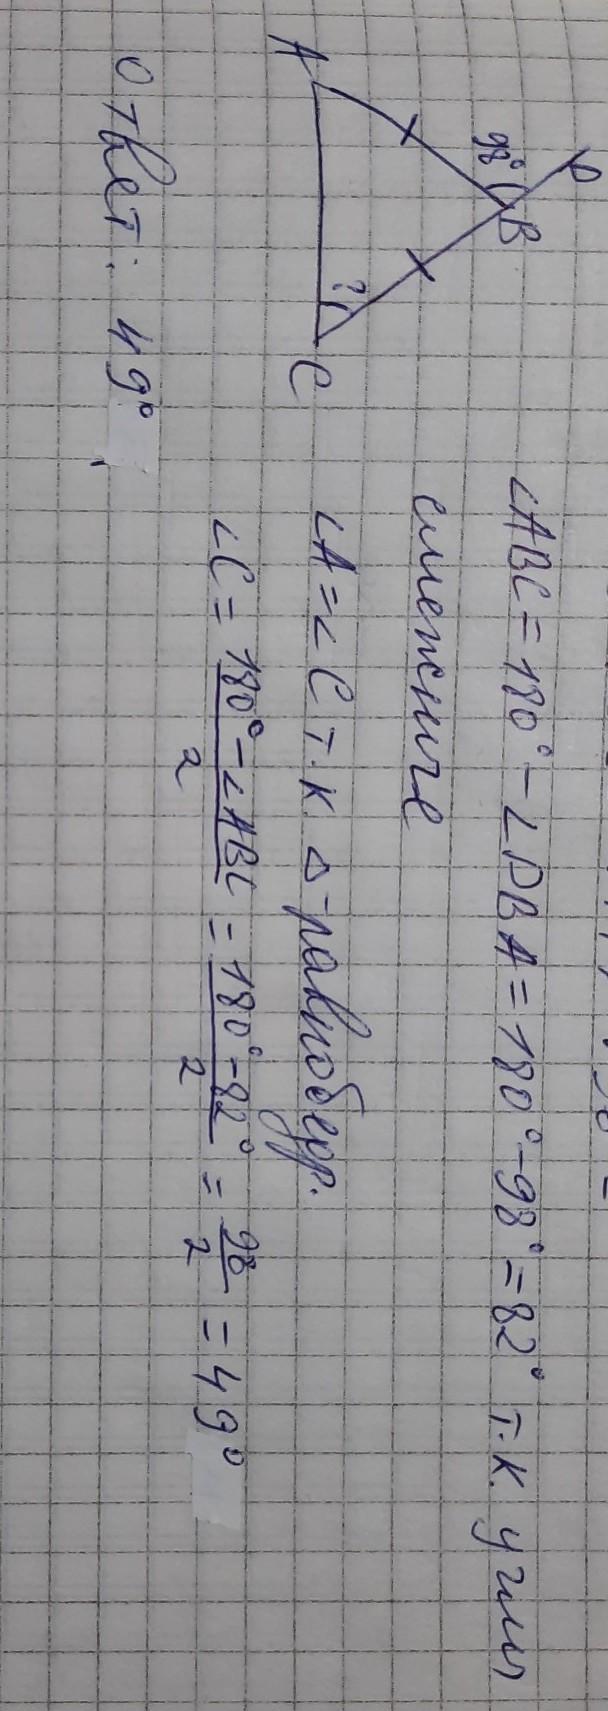 D
98°
B
A
?
C
∠ABC = 180° - ∠DBA = 180° - 98° = 82° т.к. углы
смежные
∠A = ∠C т.к. Δ-равнобедр.
∠C = (180° - ∠ABC)/2 = (180° - 82°)/2 = 98/2 = 49°
Ответ: 49°